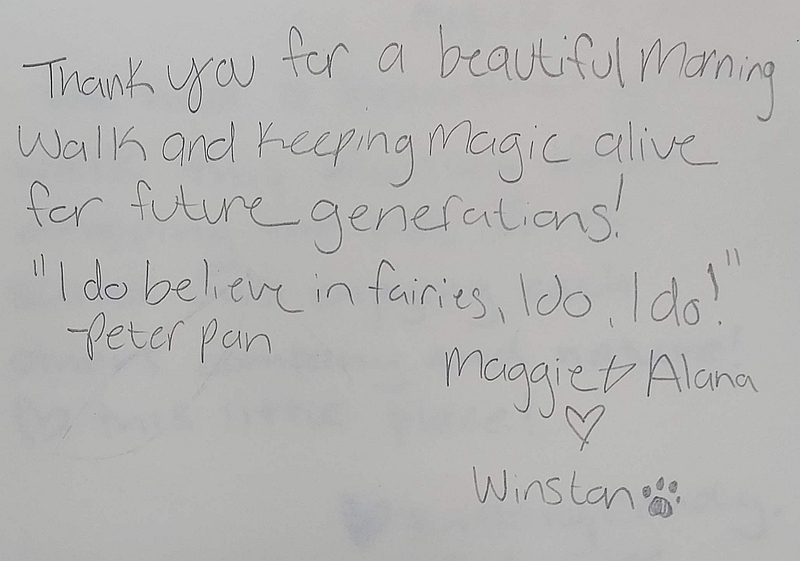 Thank you for a beautiful Morning
Walk and keeping Magic alive
for future generations!
"I do believe in fairies, I do, I do!"
-Peter Pan
Maggie & Alana
♡
Winston